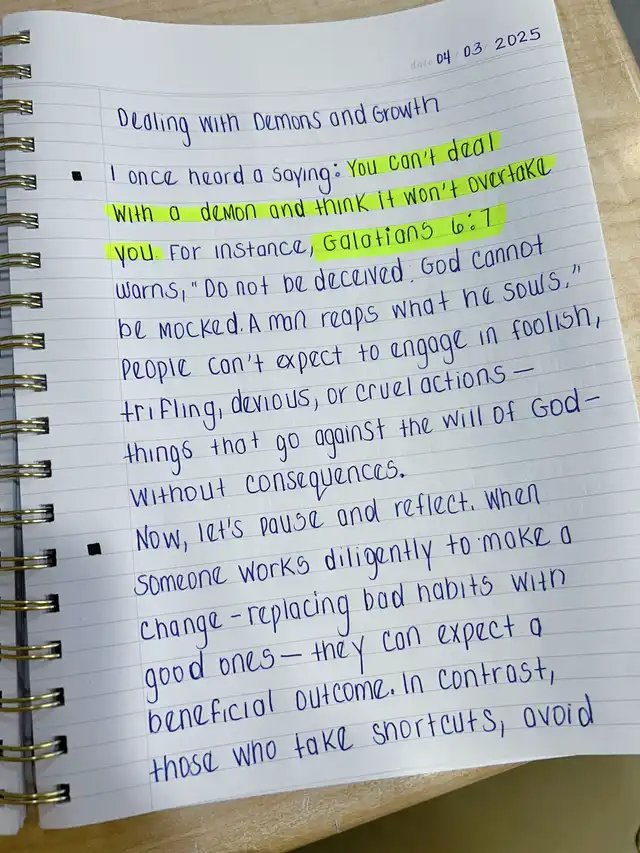 date 04 03 2025
Dealing with Demons and Growth
▪ I once heard a saying: You can't deal
with a demon and think it won't overtake
you. For instance, Galatians 6:7
warns, "Do not be deceived. God cannot
be mocked. A man reaps what he souls."
People can't expect to engage in foolish,
trifling, devious, or cruel actions —
things that go against the will of God —
without consequences.
▪ Now, let's pause and reflect. When
someone works diligently to make a
change - replacing bad habits with
good ones — they can expect a
beneficial outcome. In contrast,
those who take shortcuts, avoid